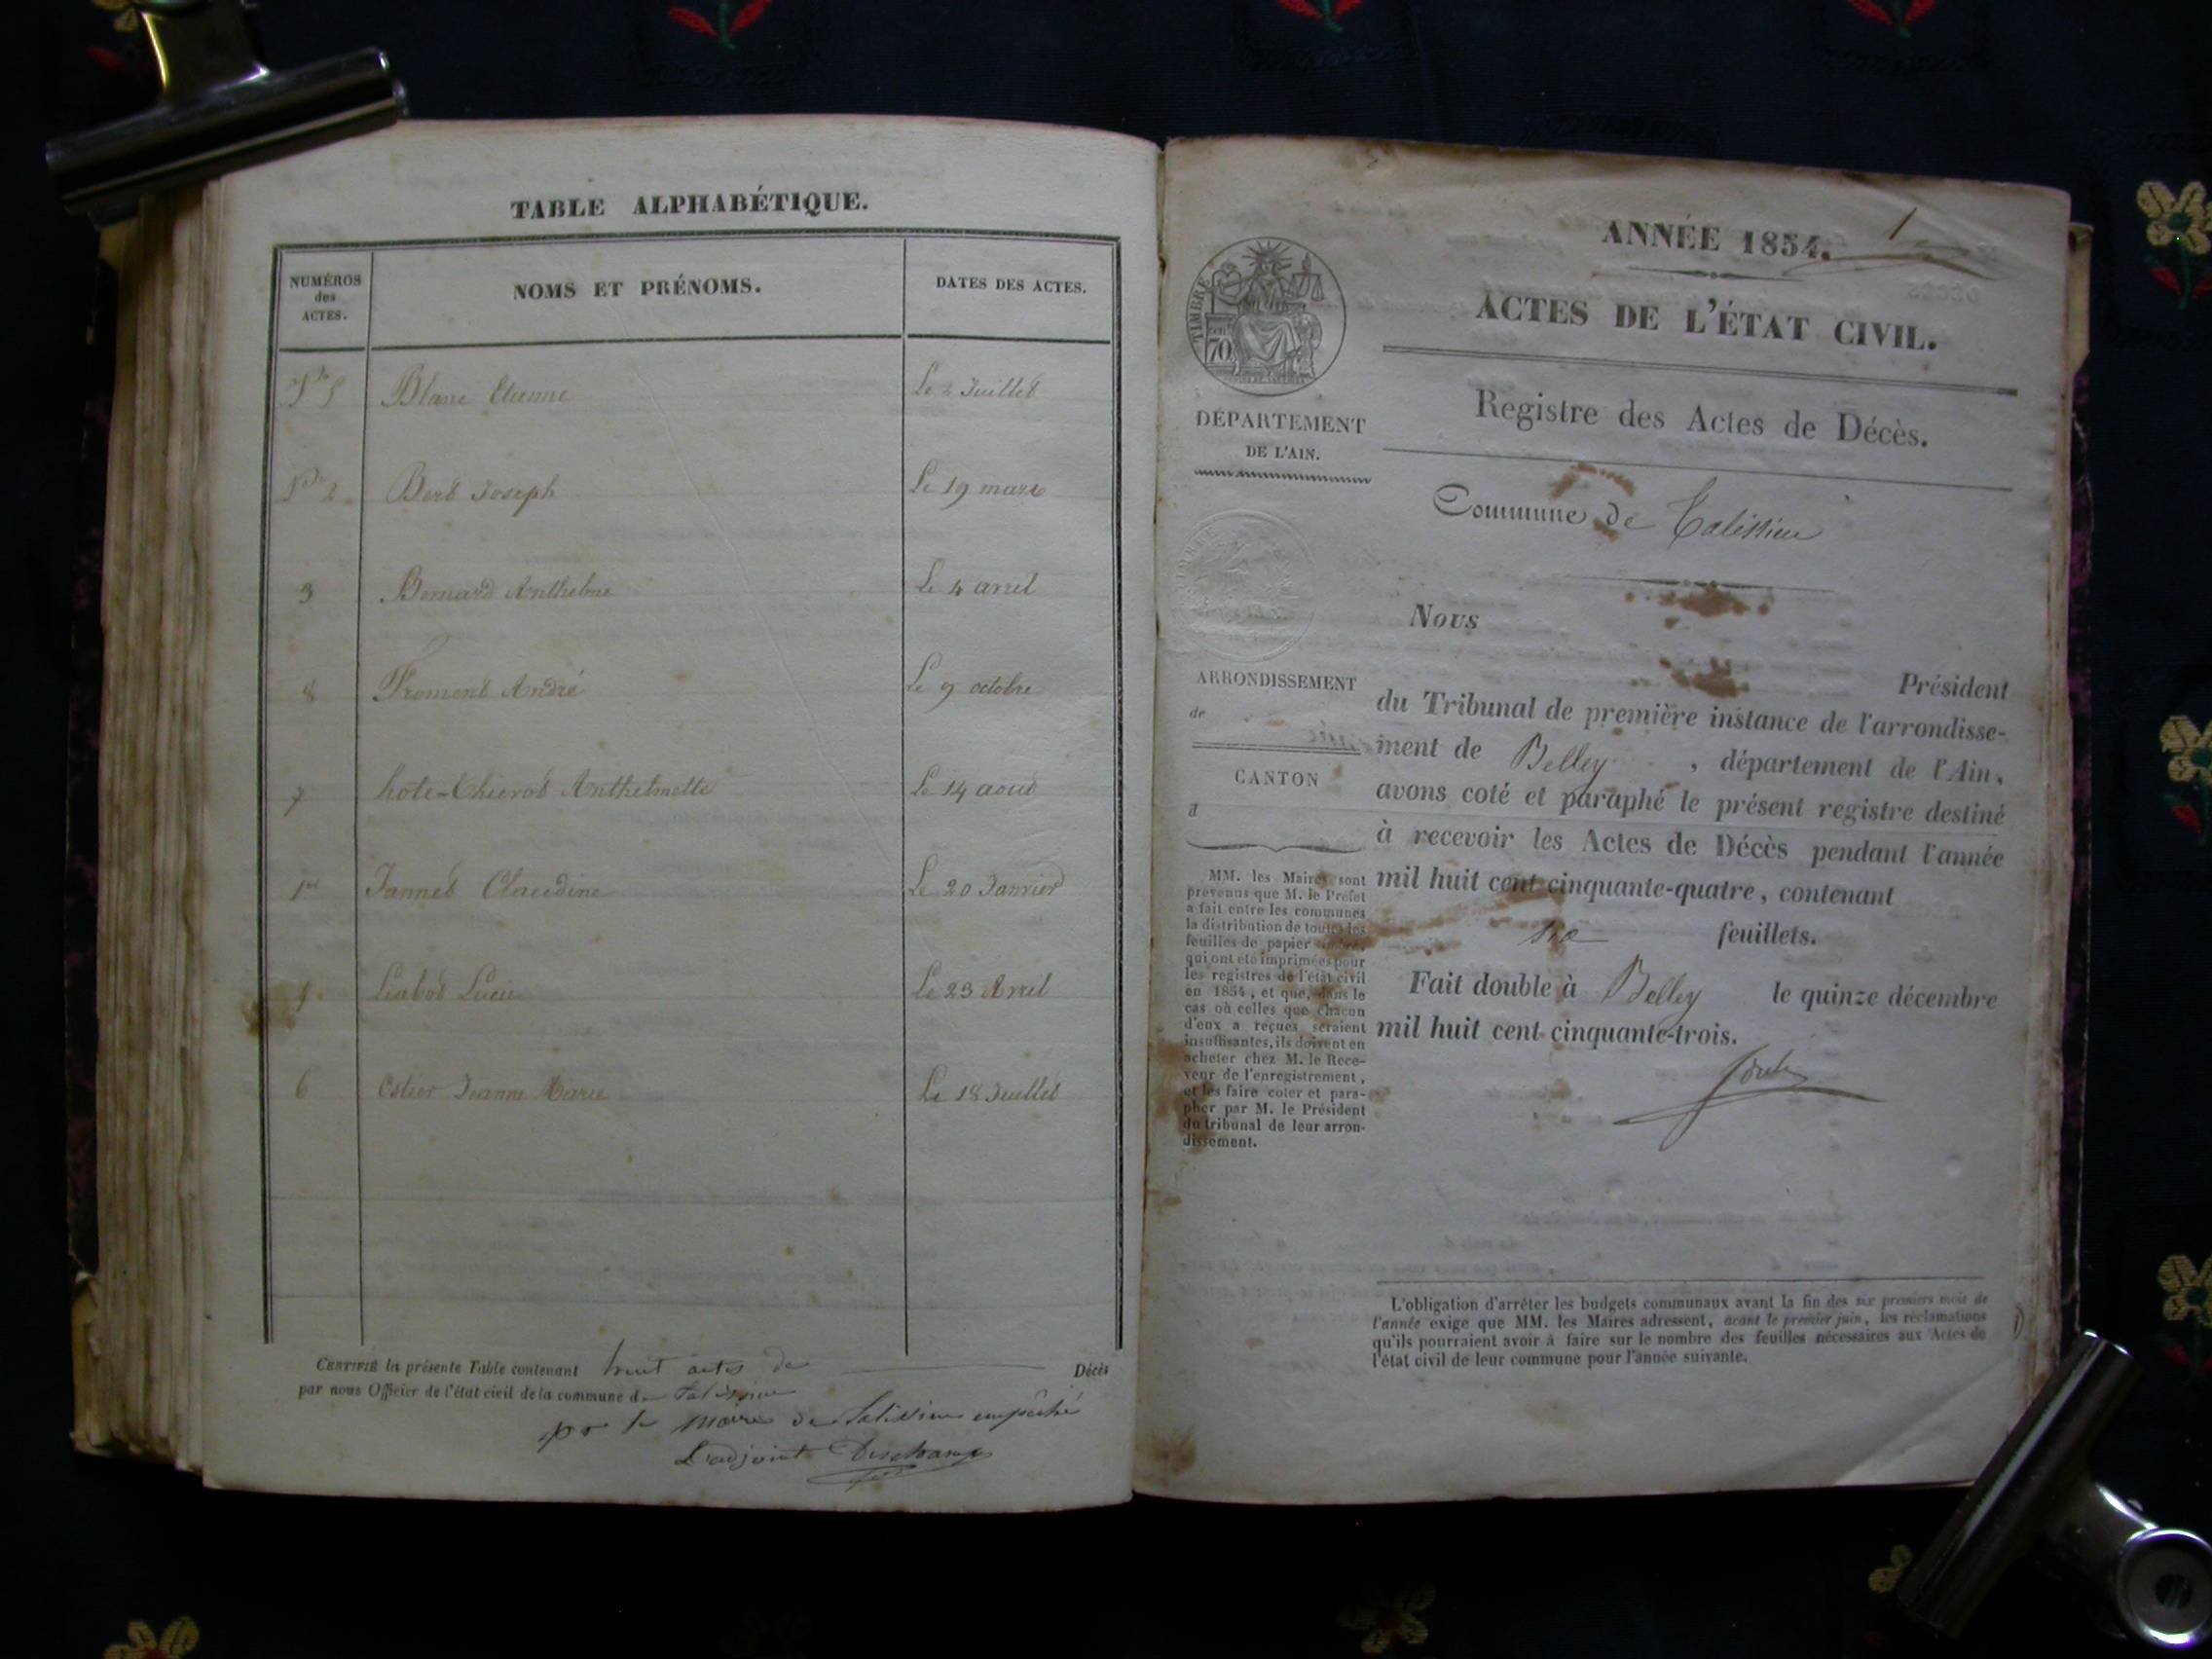 TABLE ALPHABÉTIQUE.
NUMÉROS des ACTES.
NOMS ET PRÉNOMS.
DATES DES ACTES.
No 5 Blanc Etienne Le 2 Juillet
No 2 Bert Joseph Le 19 mars
3 Bernard Anthelme Le 4 avril
8 Fromont André Le 9 octobre
7 hote-Thierot Anthelmette Le 14 aout
1er Jannet Claudine Le 20 Janvier
4 Lucie Le 23 Avril
6 Jeanne Marie Le 18 Juillet
CERTIFIÉ la présente Table contenant huit actes de Décès
par nous Officier de l'état civil de la commune de Talissieu
pr le maire de Talissieu empêché
L'adjoint
ANNÉE 1854.
1
ACTES DE L'ÉTAT CIVIL.
TIMBRE
70
DÉPARTEMENT
DE L'AIN.
Registre des Actes de Décès.
Commune de Talissieu
Nous
Président
ARRONDISSEMENT
de
CANTON
d
du Tribunal de première instance de l'arrondisse-
ment de Belley , département de l'Ain,
avons coté et paraphé le présent registre destiné
à recevoir les Actes de Décès pendant l'année
mil huit cent cinquante-quatre, contenant
six feuillets.
Fait double à Belley le quinze décembre
mil huit cent cinquante-trois.
MM. les Maires sont
prévenus que M. le Préfet
a fait entre les communes
la distribution de toutes les
feuilles de papier timbré,
qui ont été imprimées pour
les registres de l'état civil
en 1854, et que, dans le
cas où celles que chacun
d'eux a reçues seraient
insuffisantes, ils doivent en
acheter chez M. le Rece-
veur de l'enregistrement,
et les faire coter et para-
pher par M. le Président
du tribunal de leur arron-
dissement.
L'obligation d'arrêter les budgets communaux avant la fin des six premiers mois de
l'année exige que MM. les Maires adressent, avant le premier juin, les réclamations
qu'ils pourraient avoir à faire sur le nombre des feuilles nécessaires aux Actes de
l'état civil de leur commune pour l'année suivante.